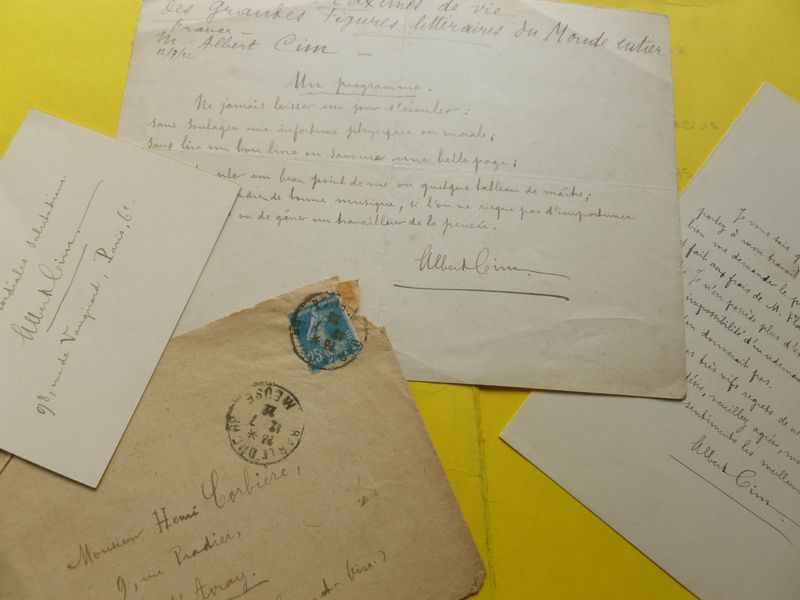 Maximes de vie
des grandes Figures littéraires du Monde entier
France
M. Albert Cim
12/7/22
Un programme.
Ne jamais laisser un jour s'écouler :
sans soulager une infortune physique ou morale ;
sans lire un bon livre ou savourer une belle page ;
un beau point de vue ou quelque tableau de maître ;
de bonne musique, si l'on ne risque pas d'importuner
ou de gêner un travailleur de la pensée.
Albert Cim.
cordiales salutations.
Albert Cim.
98, rue de Vaugirard, Paris, 6e.
25c
BAR LE DUC
12 7
22
MEUSE
Monsieur Henri Corbière,
9, rue Pradier,
d'Avray.
Oise.)
Je vous sais
portez à mon
bien me demander le
fait aux frais de M.
Je n'en possède plus
impossibilité d'en redemander
donnerait pas.
très vifs regrets de
veuillez agréer,
sentiments les meilleurs
Albert Cim.